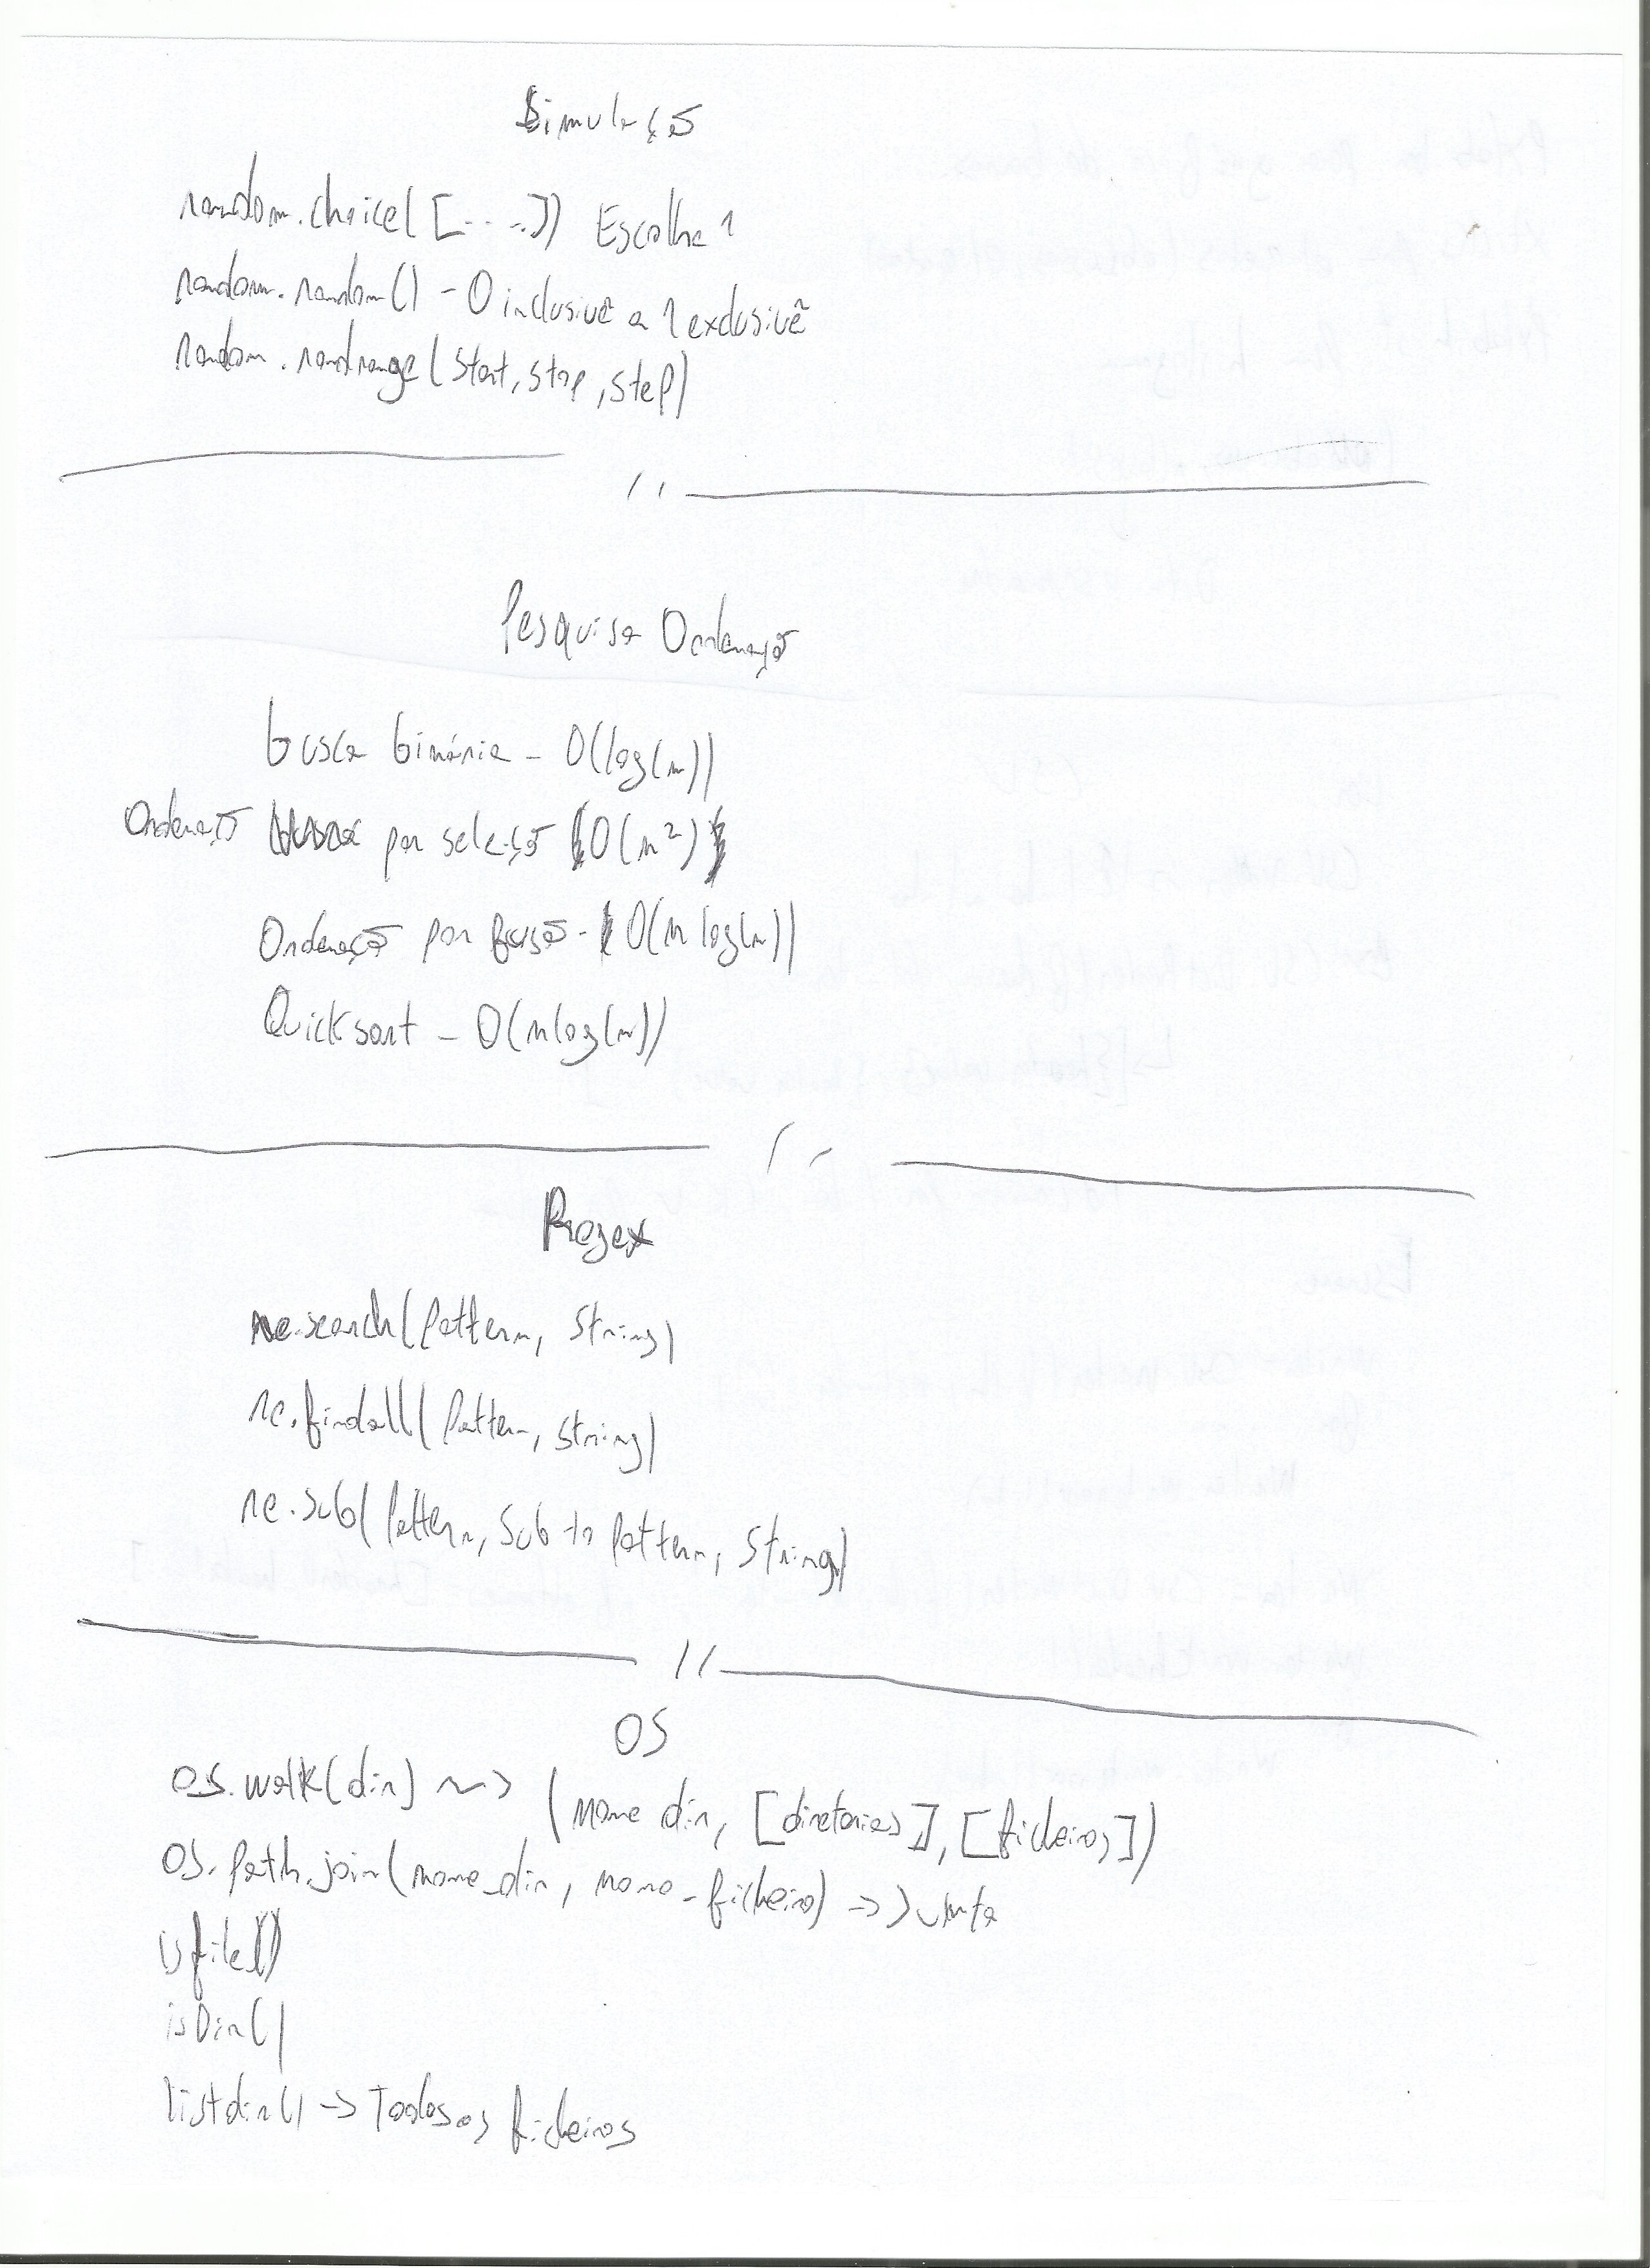 Simulação
random.choice([....]) Escolhe 1
random.random() - 0 inclusivê a 1 exclusivê
random.randrange(start, stop, step)
//
Pesquisa Ordenação
busca binária - O(log(n))
Ordenação por seleção O(n²)
Ordenação por fusão - O(n log(n))
Quicksort - O(nlog(n))
Regex
re.search(Pattern, String)
re.findall(Pattern, String)
re.sub(Pattern, Sub to Pattern, String)
//
OS
OS.walk(dir) ~> (nome dir, [diretorias], [ficheiros])
OS.Path.join(nome_dir, nome_ficheiro) ->
isfile()
isDir()
listdir() -> Todos os ficheiros